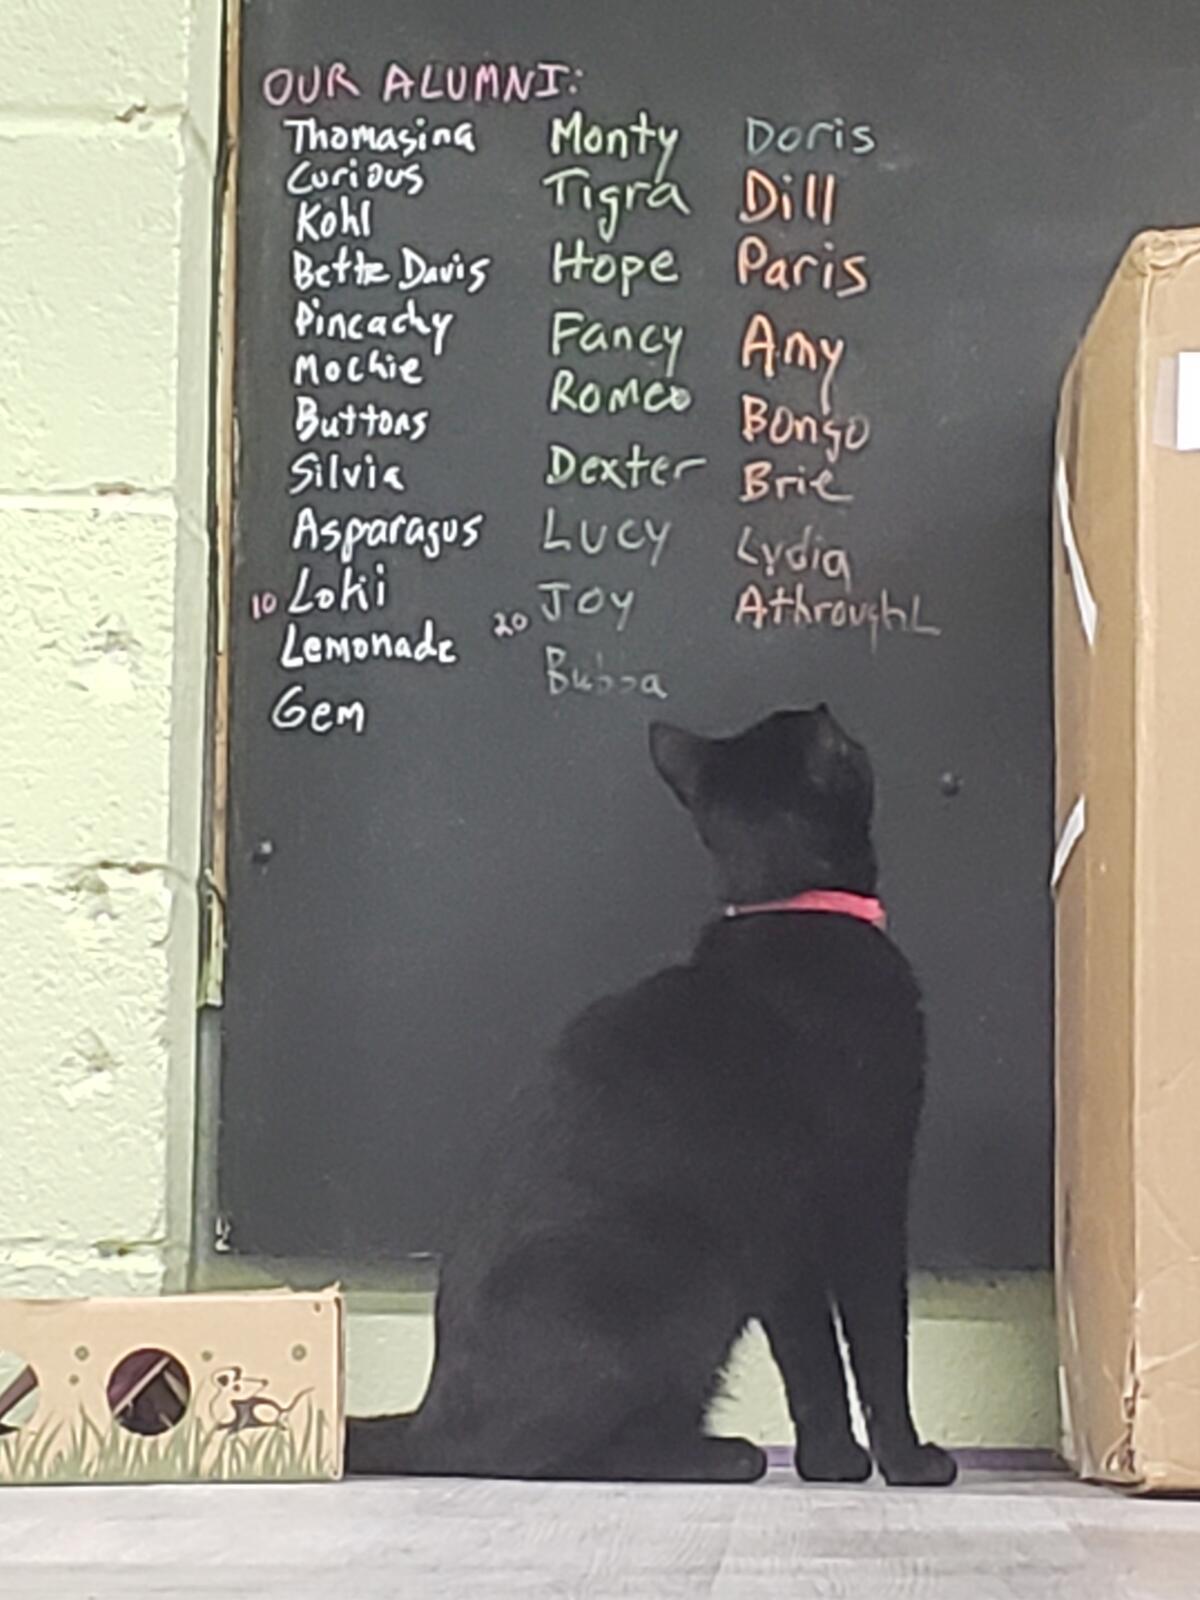 OUR ALUMNI:
Thomasina
Curious
Kohl
Bette Davis
Pincachy
Mochie
Buttons
Silvia
Asparagus
10 Loki
Lemonade
Gem
Monty
Tigra
Hope
Fancy
Romeo
Dexter
LUCY
20 JOY
Bubba
Doris
Dill
Paris
Amy
Bongo
Brie
Lydia
AthroughL